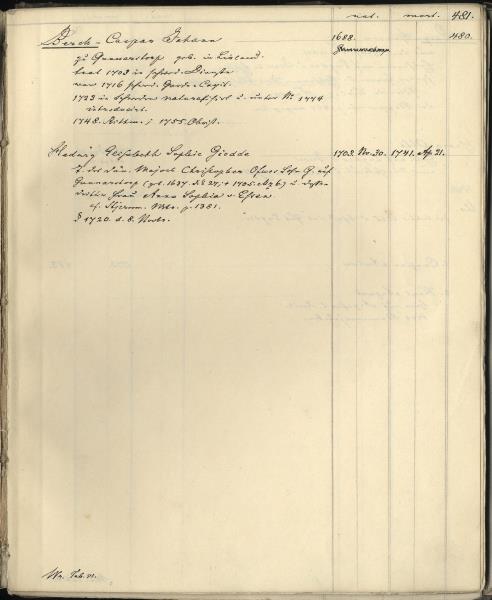 nat. mort. 481.
Berch - Caspar Johann 1688. 480.
zu Gunnarstorp geb. in Livland.
trat 1703 in schwed. Dienste
war 1716 schwed. Garde-Capit.
1723 in Schweden naturalisirt u. unter № 1474
introducirt.
1748. Rittm.; 1755. Obrist.
Hedwig Elisabeth Sophie Giedde 1703. No. 30. 1741. Ap. 21.
T. des dän. Majors Christopher G. auf
Gunnarstorp (geb. 1637. 24; † 1705. 6) u.
dritten Frau Anna Sophia v. Essen
cf. Stjernm. Mtr. p. 1381.
1720. d. 8. Novbr.
Wn. Tab. VI.